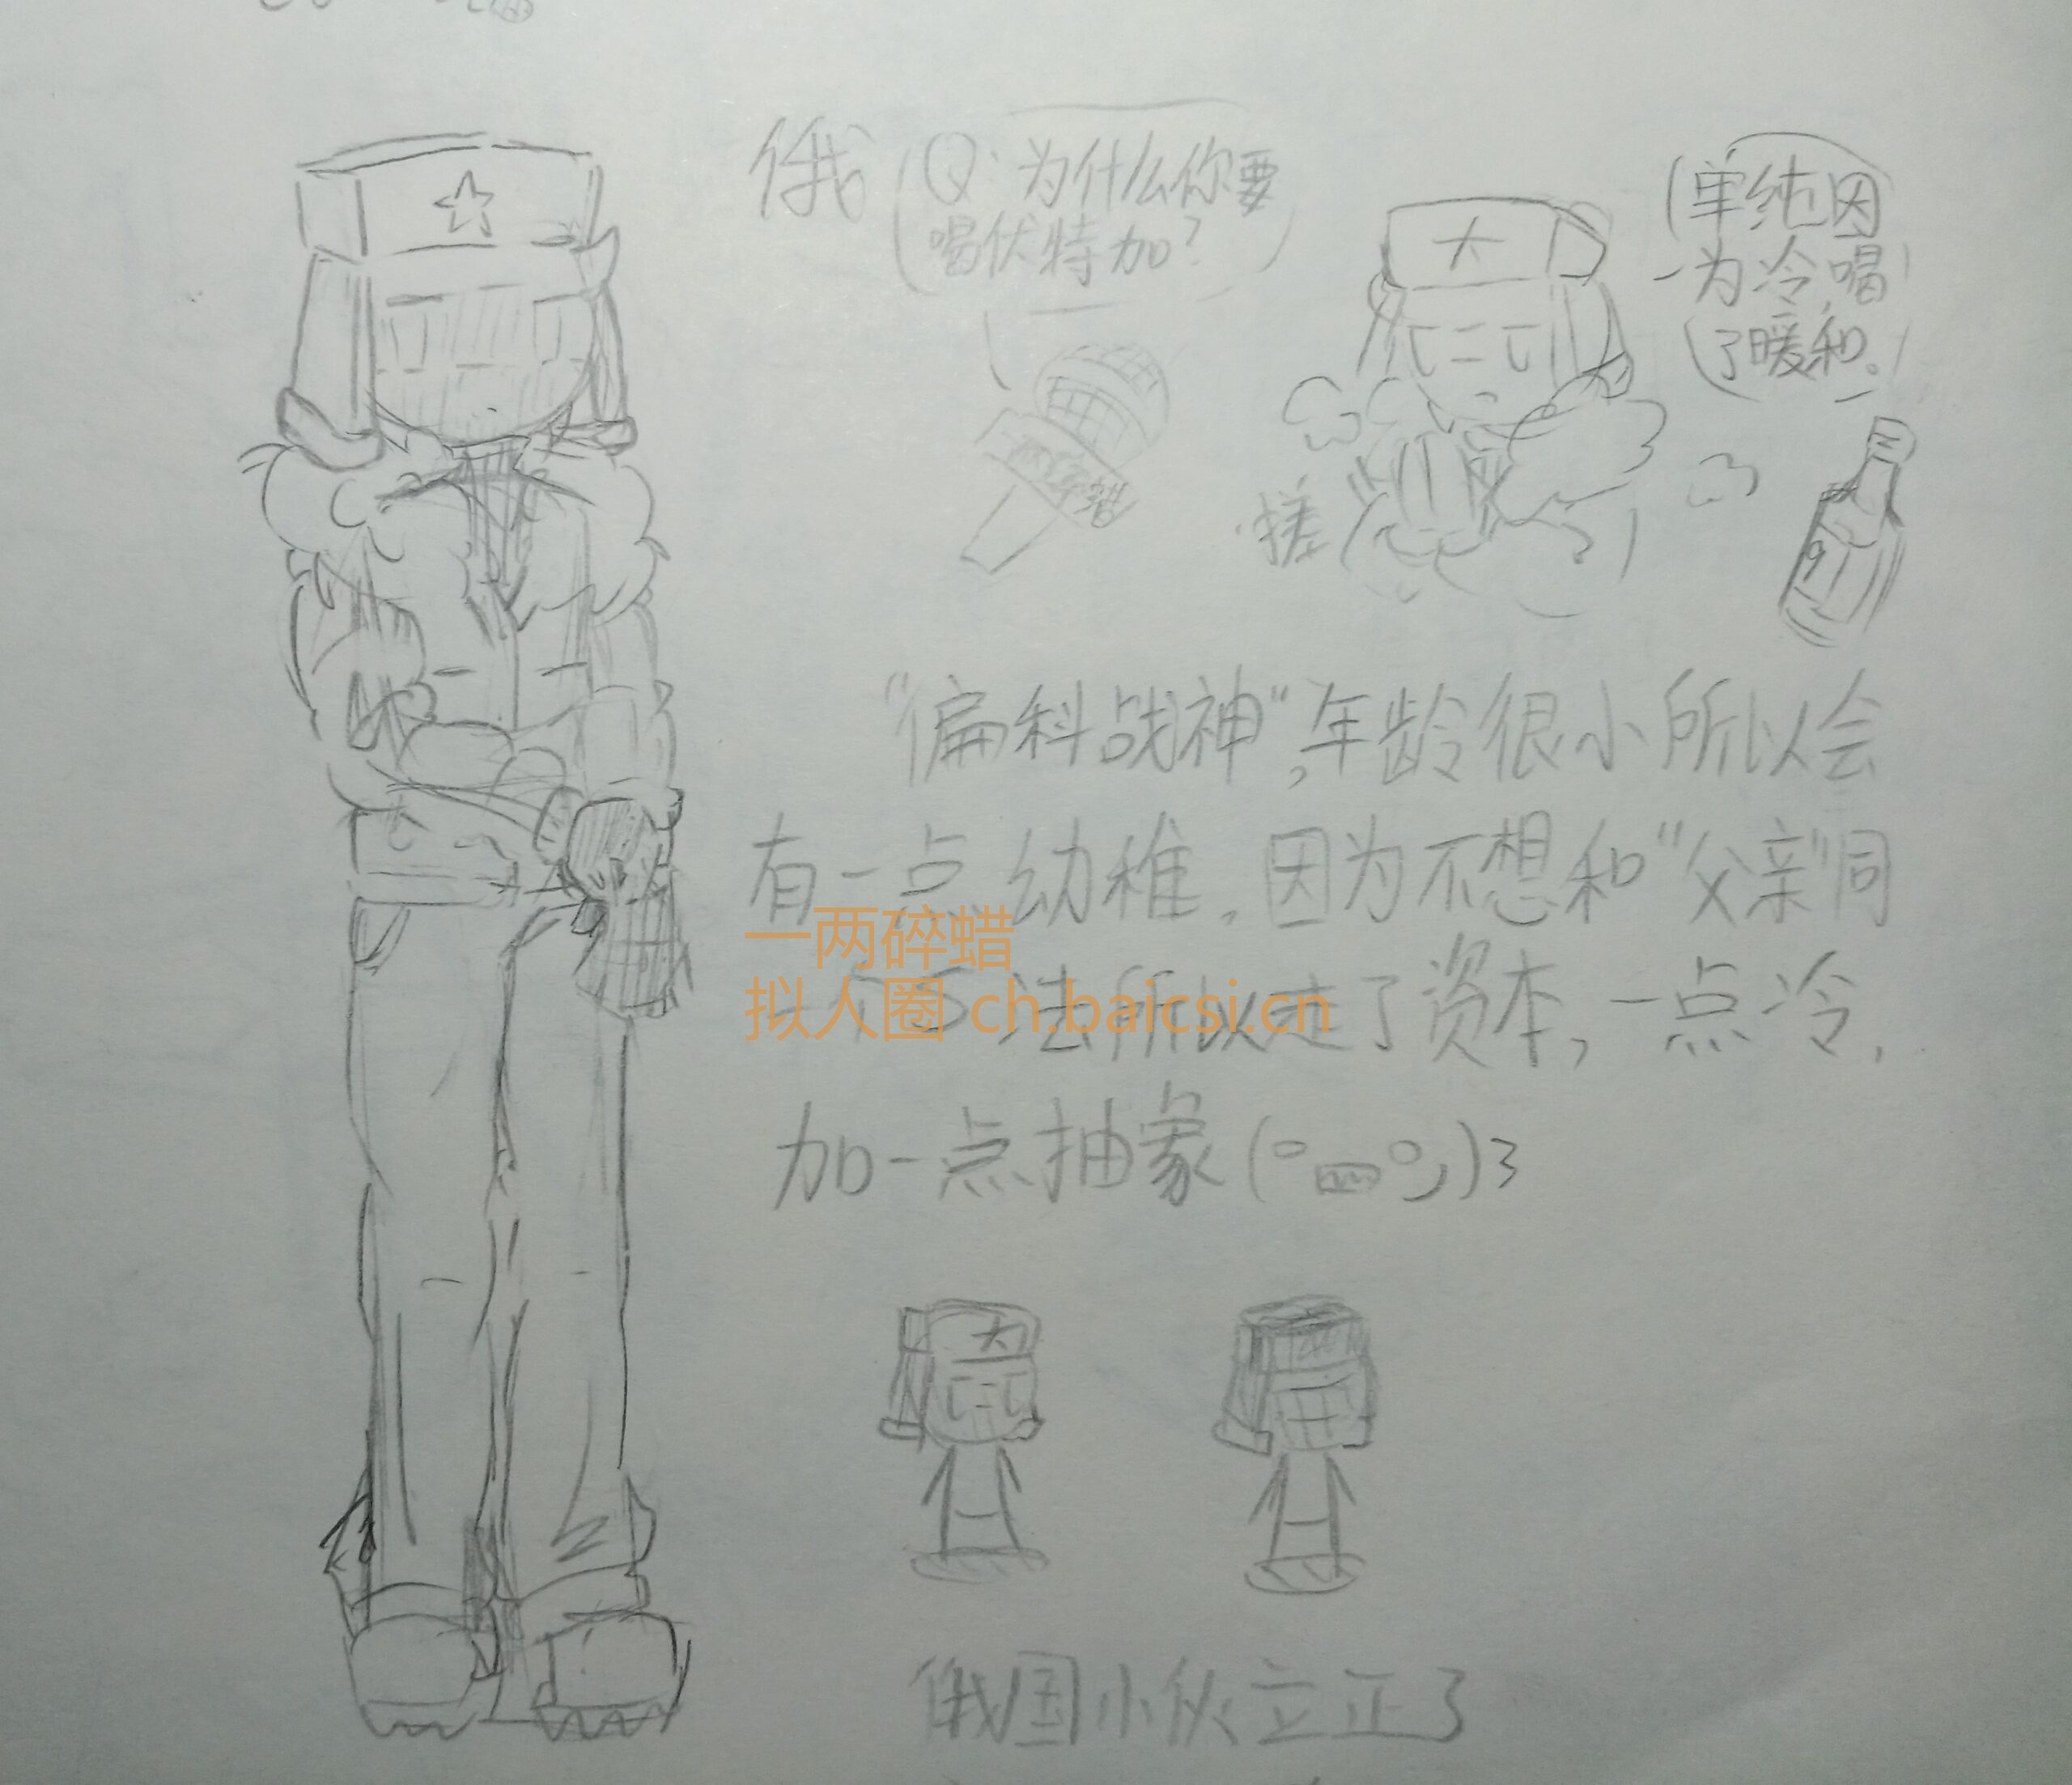 俄
Q:为什么你要
喝伏特加?
单纯因
为冷,喝
了暖和。
搓
"偏科战神",年龄很小所以会
有一点幼稚,因为不想和"父亲"同
法所以走了资本,一点冷,
加一点抽象
俄国小伙立正了
一两碎蜡
拟人圈 ch.baicsi.cn